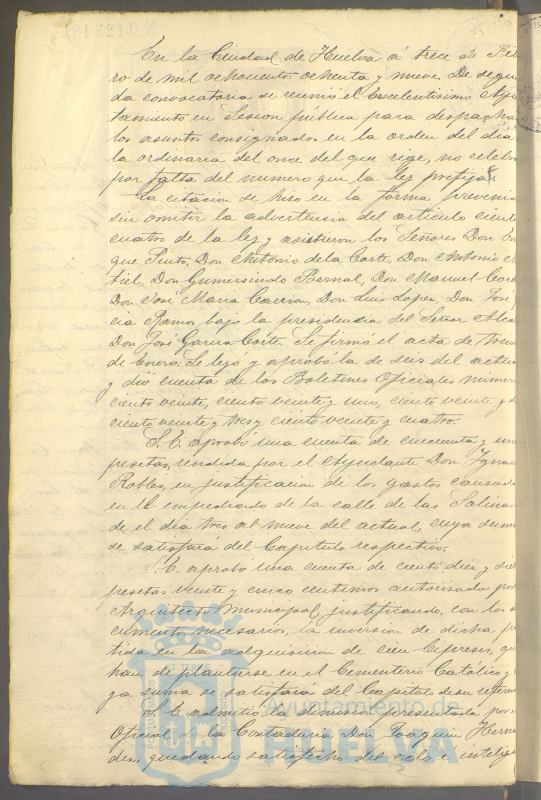 En la Ciudad de Huelva á trece de Feb
ro de mil ochocientos ochenta y nueve. De segun
da convocatoria se reunió el Excelentisimo Ayun
tamiento en Sesion pública para despachar
los asuntos consignados en la orden del dia
la ordinaria del once del que rige, no celebra
por falta del numero que la ley prefija.
La citacion se hizo en la forma prevenida
sin omitir la advertencia del articulo ciento
cuatro de la ley y asistieron los Señores Don En
que Pinto, Don Antonio de la Corte, Don Antonio
tiel, Don Gumersindo Bernal, Don Manuel Cor
Don José Maria Carrion, Don Luis Lopez, Don José
cia Ramos bajo la presidencia del Señor Alcal
Don José Garcia Corte. Se firmó el acta de trein
de Enero. Se leyó y aprobó la de seis del actua
y dió cuenta de los Boletines Oficiales numero
ciento veinte, ciento veinte y uno, ciento veinte y d
ciento veinte y tres y ciento veinte y cuatro.
S. E. aprobó una cuenta de cincuenta y un
pesetas, rendida por el Ayudante Don Ignac
Robles, en justificacion de los gastos causado
en el empedrado de la calle de las Salinas
de el dia tres al nueve del actual, cuya suma
se satisfará del Capitulo respectivo.
S. E. aprobó una cuenta de ciento diez y
pesetas veinte y cinco centimos autorizada por
Arquitecto Municipal, justificando, con los
cumentos necesarios, la inversion de dicha
tida en la adquisicion de cien Cipreses, que
han de plantarse en el Cementerio Católico
ya suma se satisfará del Capitulo de su referen
S. E. admitió la dimision presentada por
Oficial de la Contaduria Don Joaquin Herna
dez, quedando satisfecho del celo e intelige
Ayuntamiento de
HUELVA